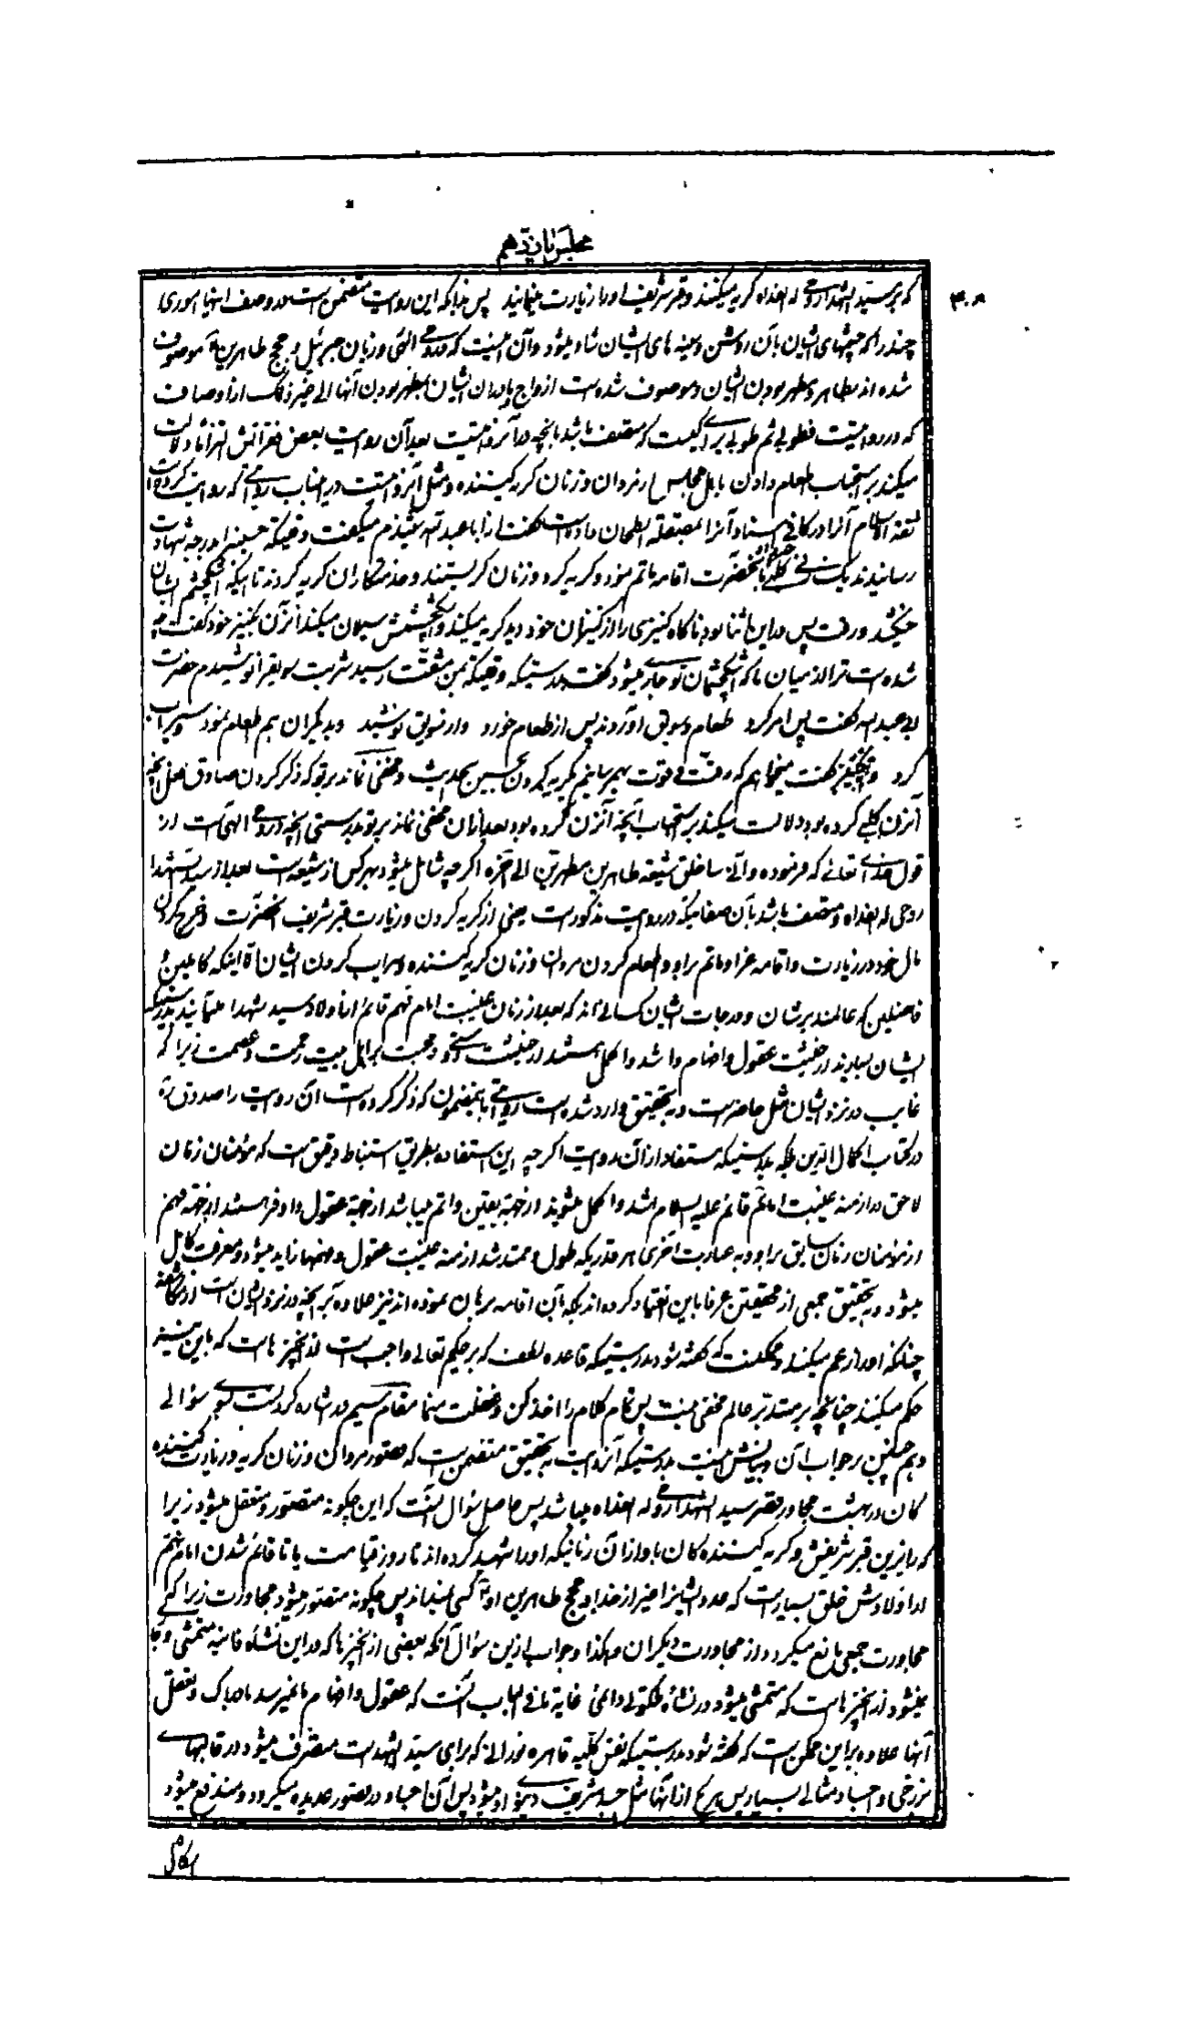 مجلس پانزدهم
۳۰۸
که بر سید الشهدا روحی له الفداه گریه میکنند و قبر شریف او را زیارت مینمایند پس بدانکه این روایت متضمن است در وصف اینها اموری
چند را که چشمهای ایشان بآن روشن و سینه های ایشان شاد میشود و آن اینست که در وحی الهی و زبان جبرئیل و حجج طاهرین موصوف
شده اند بطاهر و مطهر بودن ایشان و موصوف شده است ازواج و اولاد ایشان بمطهر بودن آنها الی غیر ذلک از اوصاف
که در روایتست فطوبی ثم طوبی برای کیست که متصف باشد بآنچه در آنروایتست بعد آن روایت بعض فقراتش دلالت
میکند بر استحباب طعام دادن باهل مجلس از مردان و زنان گریه کننده و مثل آنروایتست در اینباب روایتی که روایت کرده است
ثقة الاسلام آنرا در کافی اسناد آنرا بمصقلة الطحان داده است گفت از ابا عبد الله شنیدم میگفت وقتیکه حسین را بدرجه شهادت
رسانیدند یک زن کلبی آنحضرت اقامه ماتم نمود و گریه کرد و زنان گریستند و خدمتکاران گریه کردند تا اینکه اشکچشم ایشان
خشکید و رفت پس در این اثنا بود ناگاه کنیزی را از کنیزان خود دید گریه میکند و اشکچشمش سیلان میکند آنزن بکنیز خود گفت چه
شده است ترا از میان ما که اشکچشمان تو جاری میشود گفت بدرستیکه وقتیکه بمن مشقت رسید شربت سویق را نوشیدم حضرت
ابی عبد الله گفت پس امر کرد طعام و سویق آوردند پس از طعام خورد و از سویق نوشید و بدیگران هم طعام نمود و سیراب
کرد و گفت میخواهم که رفت قوت بهم رسانیم بگریه کردن بحسین بحدیث و مخفی نماند بر تو که ذکر کردن صادق فعل آنچه
آنزن کلبی کرده بود دلالت میکند بر استحباب آنچه آنزن کرده بود بعد از آن مخفی نماند بر تو بدرستی آنچه در وحی الهی است از
قول خدای تعالی که فرموده و انی ساخلق شیعته طاهرین مطهرین الی آخره اگر چه شامل میشود بهر کس از شیعه است بعد از سید الشهدا
روحی له الفداه و متصف باشد بآن صفاتیکه در روایت مذکور است یعنی از گریه کردن و زیارت قبر شریف آنحضرت و خرج کردن
مال خود در زیارت و اقامه عزا و ماتم بر او و طعام کردن مردان و زنان گریه کننده و سیراب کردن ایشان الا اینکه کاملین و
فاضلین که عالمند بر شان و درجات ایشان کسانی اند که بعد از زمان غیبت امام نهم قائم از اولاد سید شهدا میآیند بدرستیکه
ایشان میآیند از حیثیت عقول و افهام اشد و اکمل هستند از حیثیت و محبت بر اهل بیت رحمت و عصمت زیرا که
غایب در نزد ایشان مثل حاضر است و بتحقیق وارد شده است روایتی باینمضمون که ذکر کرده است آن روایت را صدوق ره
در کتاب اکمال الدین بلکه بدرستیکه مستفاد از آن روایت اگر چه این استفاده بطریق استنباط دقیق است که مؤمنان زمان
لاحق در ازمنه غیبت امام قائم علیه السلام اشد و اکمل میشوند از جهة یقین و اتم میباشد از جهة عقول و اوفر هستند از جهة فهم
از مؤمنان زمان سابق بر او و به عبارت اخری هر قدریکه طول و ممتد شد ازمنه غیبت عقول و فهمها زاید میشود و معرفت کامل
میشود و بتحقیق جمعی از محققین عرفا باین اعتماد کرده اند بلکه بآن اقامه برهان نموده اند نیز علاوه بر آنچه در نزد ایشان است از مکاشفه
چنانکه او را زعم میکنند و ممکنست که گفته شود بدرستیکه قاعده لطف که بر حکیم تعالی واجب است از آنچیزهاست که باین نیز
حکم میکند چنانچه بر متدبر عالم مخفی نیست پس تمام کلام را اخذ کن و غفلت منما مقام سیم در اشاره کردنست بسوی سؤالی
و هم چنین بر جواب آن و بیانش اینست بدرستیکه آنروایت به تحقیق متضمن است که حضور مردان و زنان گریه و زیارت کننده
گان در بهشت مجاور قصر سید الشهدا روحی له الفداه میباشد پس حاصل سؤال آنست که این چگونه متصور و متعقل میشود زیرا
که زایرین قبر شریفش و گریه کننده گان باو از آن زمانیکه او را شهید کرده اند تا روز قیامت یا تا قائم شدن امام نهم
از اولادش خلق بسیار است که عدد ایشانرا غیر از خدا و حجج طاهرین او کسی نمیداند پس چگونه متصور میشود مجاورت زیرا که
مجاورت جمعی مانع میگردد از مجاورت دیگران و هکذا و جواب ازین سؤال آنکه بعضی از آنچیزها که در این نشأه فانیه متمشی و جا
نمیشود از آنچیزهاست که متمشی میشود در نشأه ملکوتی دائمی غایة مافی الباب آنست که عقول و افهام ما نمیرسد بادراک و تعقل
آنها علاوه بر این ممکن است که گفته شود بدرستیکه نفس کلیه قاهره نورانی که برای سید الشهدا است متصرف میشود در قالبهای
برزخی و اجساد مثالی بسیار پس هر یکی از آنها مثل جسد شریف دنیوی او میشود پس آن اجساد در قصور عدیده میگردد و مندفع میشود